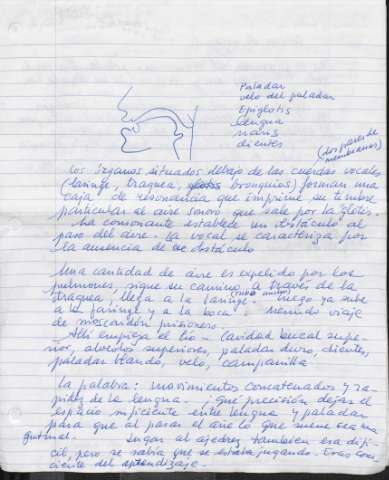 Paladar
velo del paladar
Epiglotis
lengua
nariz
dientes
(dos pares de
membranas)
Los órganos situados debajo de las cuerdas vocales
(laringe, traquea, glotis bronquios) forman una
caja de resonancia que imprime su timbre
particular al aire sonoro que sale por la glotis.
La consonante establece un obstáculo al
paso del aire. La vocal se caracteriza por
la ausencia de ese obstáculo
Una cantidad de aire es expelido por los
pulmones, sigue su camino a través de la
traquea, llega a la laringe. Luego ya sube
a la faringe y a la boca. Menudo viaje
de moscardón prisionero.
Alli empieza el lío - Cavidad bucal supe-
rior, alveolos superiores, paladar duro, dientes,
paladar blando, velo, campanilla
La palabra: movimientos concatenados y rá-
pidos de la lengua. ¡Qué precisión dejar el
espacio suficiente entre lengua y paladar
para que al pasar el aire lo que suene sea una
gutural. Jugar al ajedrez también era difí-
cil, pero se sabía que se estaba jugando. Eras cons-
ciente del aprendizaje.